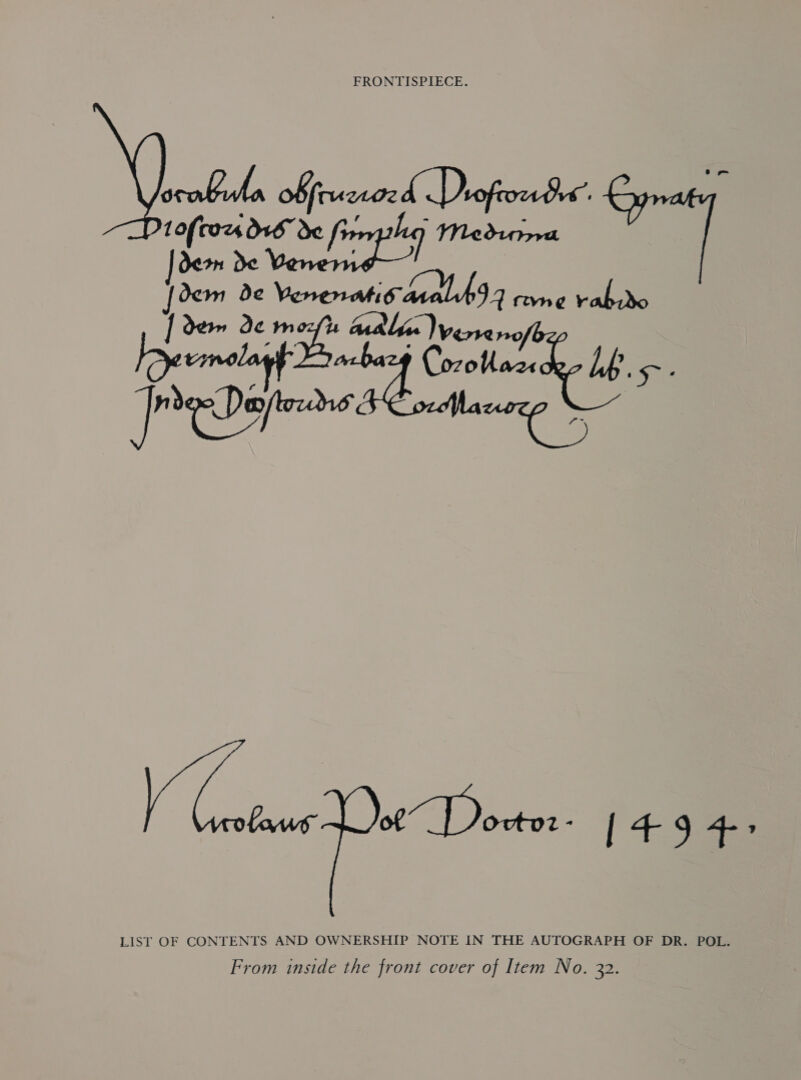 FRONTISPIECE.
Vocabula Dioscoridis. Egnatij
Dioscoridis de Medicina
Idem de Venenis
Idem de Venenatis cane rabido
Idem de morsu venenosoꝝ
Hermolai Barbari Corollarioꝝ lib. 5.
Index Dioscoridis & Corollarioꝝ
Nicolaus Pol Doctor. 1494.
LIST OF CONTENTS AND OWNERSHIP NOTE IN THE AUTOGRAPH OF DR. POL.
From inside the front cover of Item No. 32.